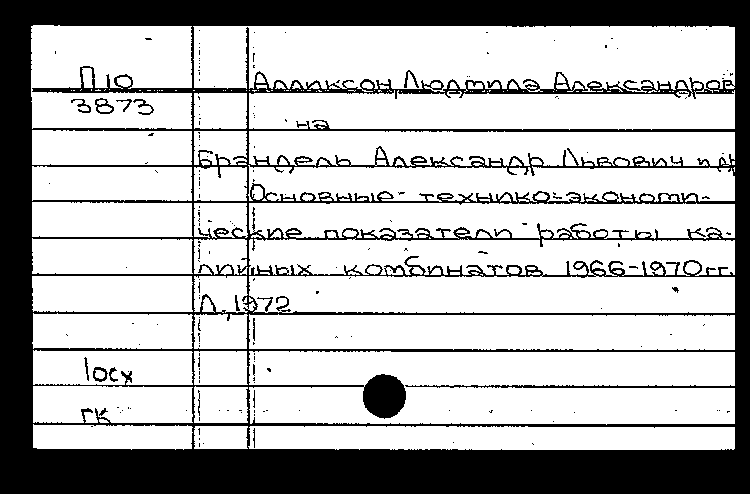 П10
3873
Алликсон, Людмила Александров
на
Брандель Александр Львович и др
Основные технико-экономи-
ческие показатели работы ка-
лийных комбинатов 1966-1970гг.
Л., 1972
1осх
гк